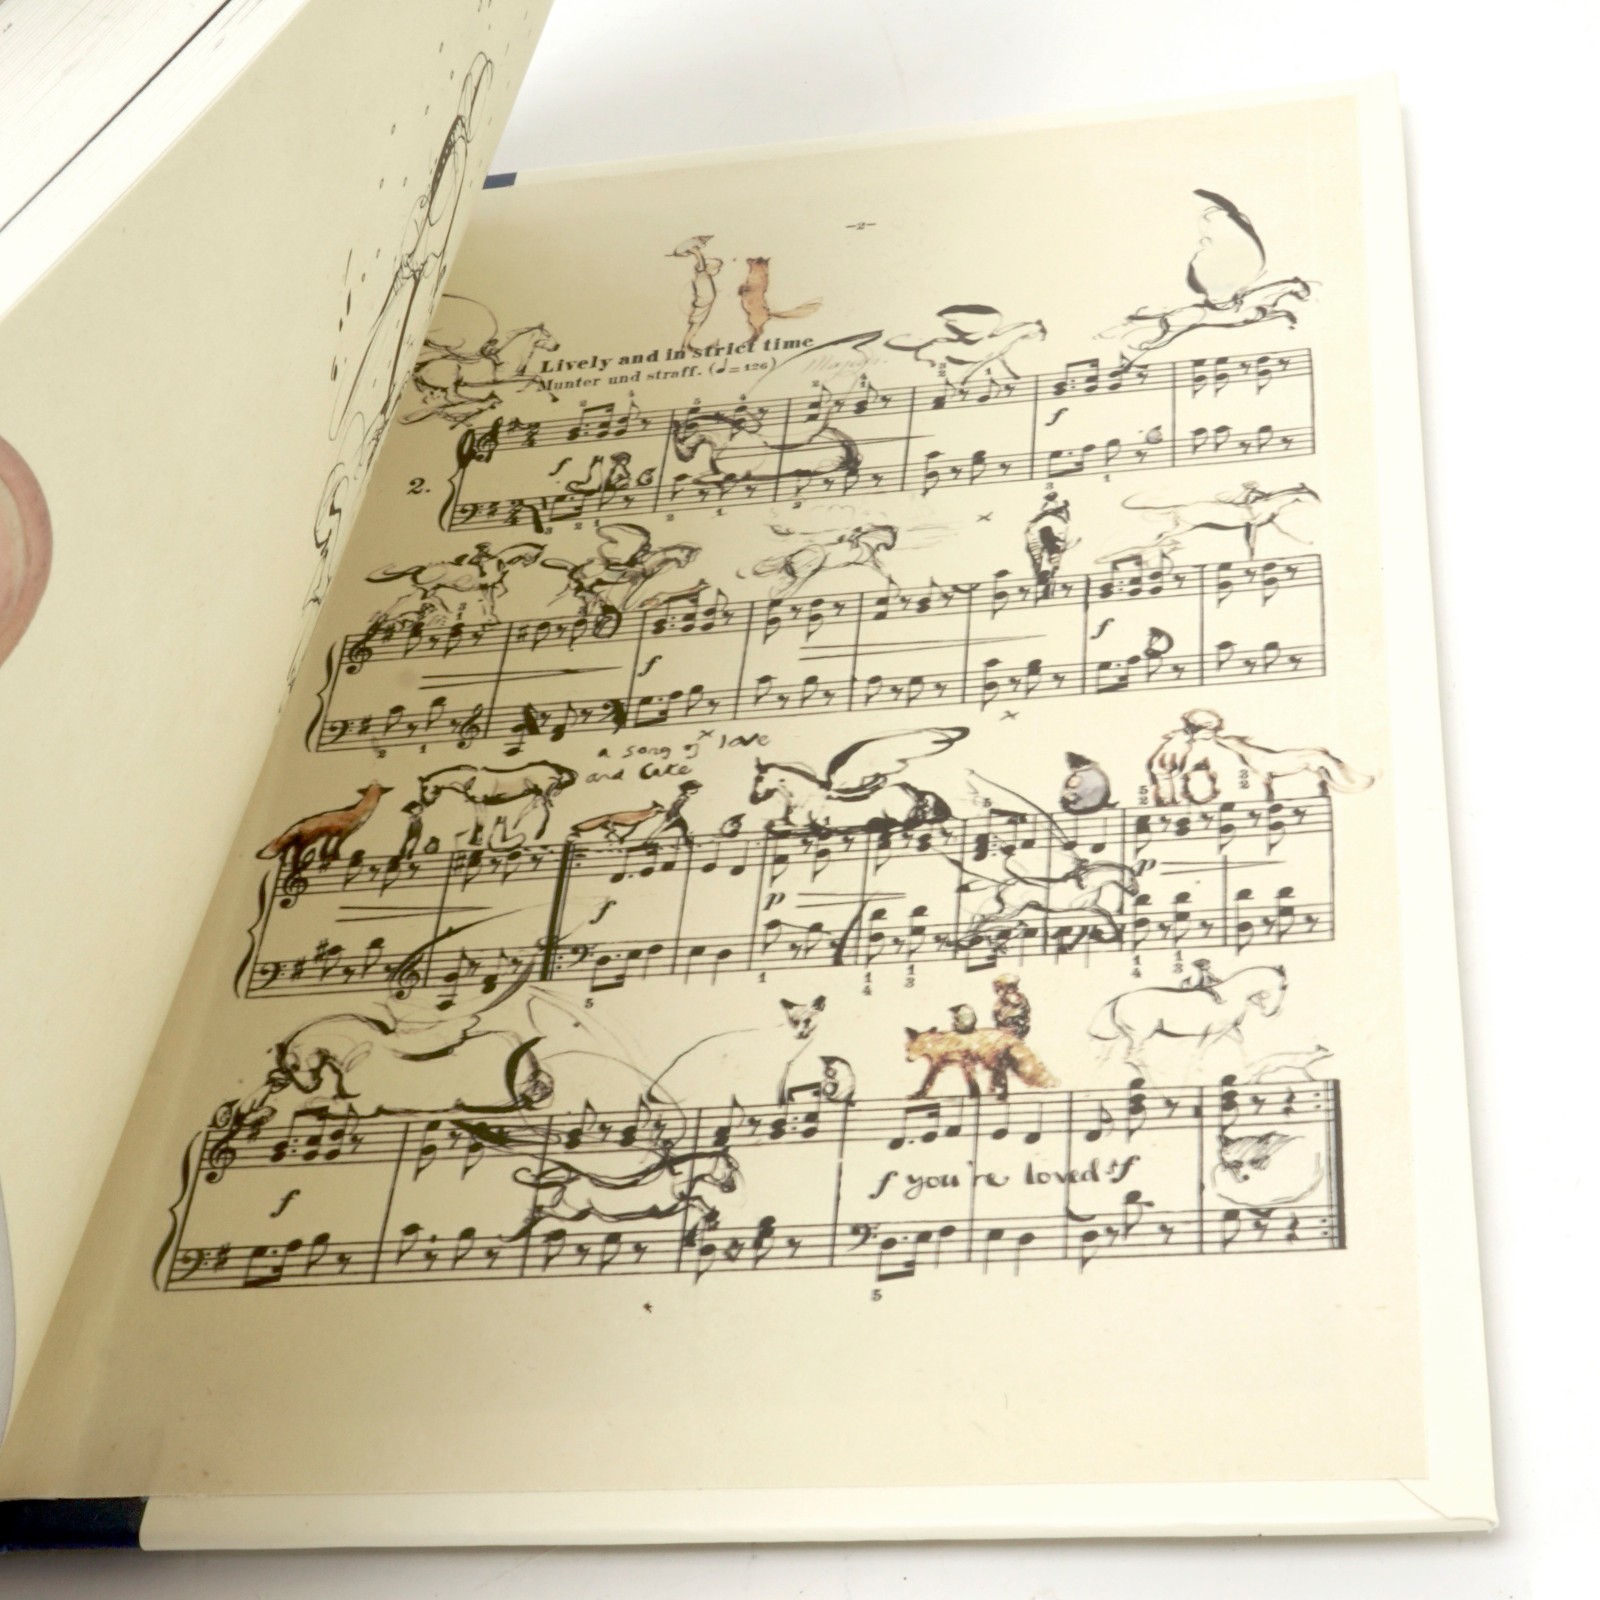 –2–
Lively and in strict time
Munter und straff. (♩=126)
2.
f
f
f
f
a song of love
and Cake
f
p
p
f
f you're loved sf